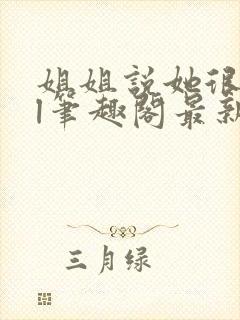 姐姐説她很
l筆趣閣最新
三月绿